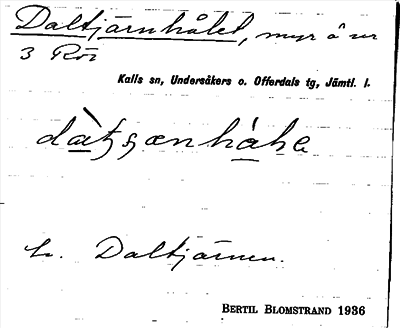 Daltjärnhålet, myr å
3 Rör
Kalls sn, Undersåkers o. Offerdals tg, Jämtl. l.
Daltjärnen.
BERTIL BLOMSTRAND 1936